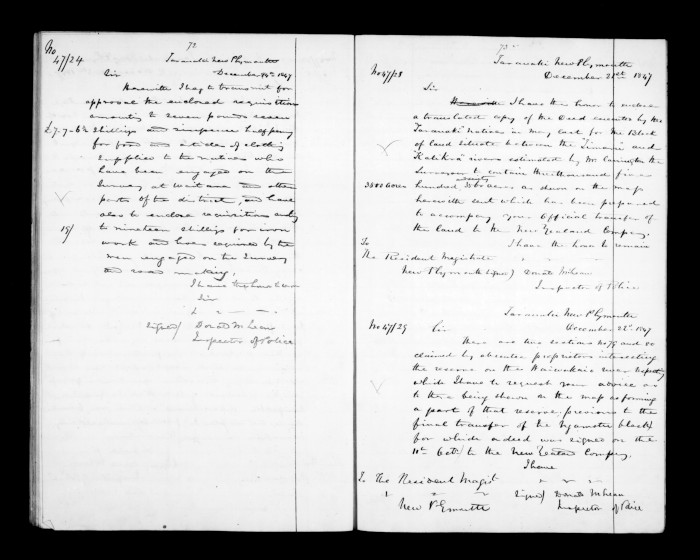 72
No 47/24
Taranaki New Plymouth
December 14th 1847
Sir
Herewith I beg to transmit for
approval the enclosed requisition
amounting to seven pounds seven
£7.7-6½ shillings and sixpence halfpenny
for food and articles of clothing
supplied to the natives who
have been engaged on the
survey at Waitara and other
parts of the district, and have
also to enclose requisitions
19/ to nineteen shillings for iron
work and hoes required by the
men engaged on the Survey
and road making.
I have the honor
Sir
Signed) Donald McLean
Inspector of Police
73
Taranaki New Plymouth
No 47/28
December 21st 1847
Sir
I have the honor to enclose
a translated copy of the Deed executed by the
Taranaki Natives in May last for the Block
of land situate between the Timaru and
Katikara rivers estimated by Mr Carrington the
Surveyor to contain three thousand five
3500 acres hundred acres as shewn on the map
herewith sent which has been prepared
to accompany your official transfer of
the land to the New Zealand Company.
I have the honor to remain
To
The Resident Magistrate
New Plymouth Signed) Donald McLean
Inspector of Police
Taranaki New Plymouth
No 47/29
December 22d 1847
Sir
There are two sections No 79 and 80
claimed by absentee proprietors intersecting
the reserve on the Waiwakaio river respecting
which I have to request your advice as
to there being shewn on the map as forming
a part of that reserve previous to the
final transfer of the block
for which a deed was signed on the
11th Octr to the New Zealand Company.
I have
To The Resident Magist
Signed) Donald McLean
New Plymouth
Inspector of Police